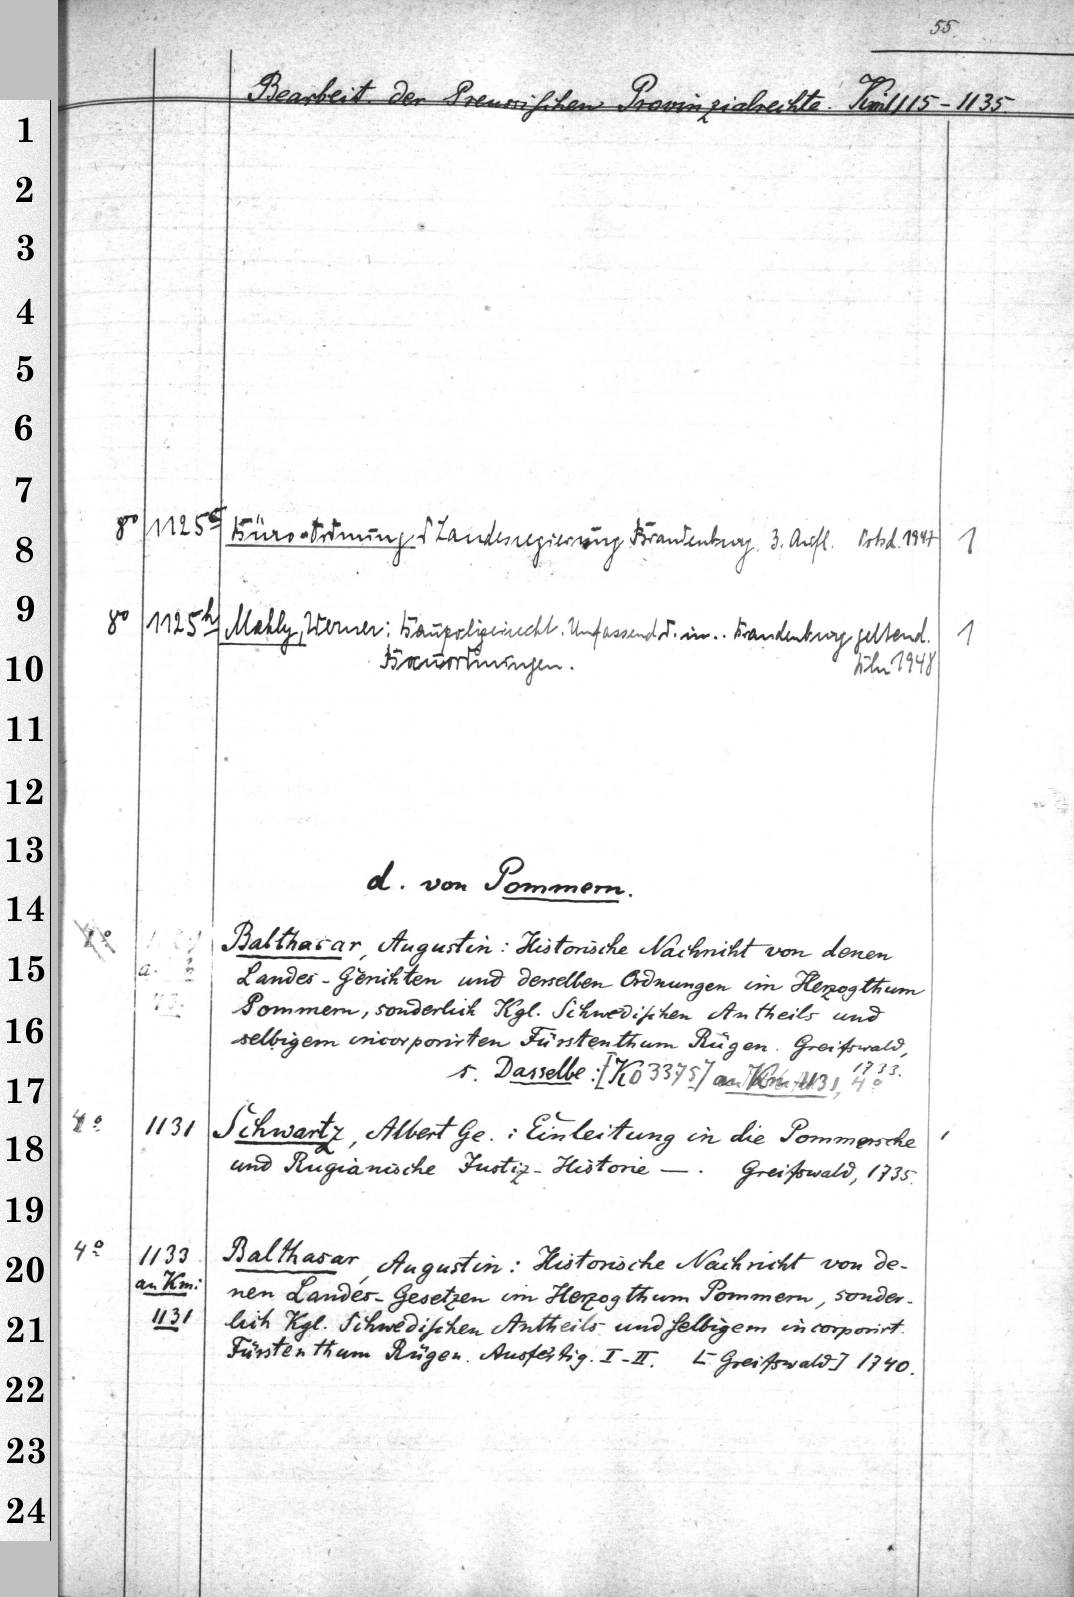 55.
Bearbeit. der Preussischen Provinzialrechte. Km 1115-1135.
1
2
3
4
5
6
7
8° 1125 Büro-Ordnung d Landesregierung Brandenburg. 3. Aufl. Potsd. 1947 1
8
9
8° 1125h Mahly, Werner: Baupolizeirecht. Umfassend d. in .. Brandenburg geltend. 1
10 Bauordnungen. Bln 1948
11
12
13
d. von Pommern.
14
4° Balthasar, Augustin: Historische Nachricht von denen
15 Landes-Gerichten und derselben Ordnungen im Herzogthum
Pommern, sonderlich Kgl. Schwedischen Antheils und
16 selbigem incorporirten Fürstenthum Rügen. Greifswald,
1733.
17 s. Dasselbe: [Ko 3375] an Km 1131, 4°
4° 1131 Schwartz, Albert Ge.: Einleitung in die Pommersche 1
18 und Rugianische Justiz-Historie —. Greifswald, 1735.
19
4° 1133 Balthasar, Augustin: Historische Nachricht von de-
20 an Km: nen Landes-Gesetzen im Herzogthum Pommern, sonder-
21 1131 lich Kgl. Schwedischen Antheils und selbigem incorporirt.
Fürstenthum Rügen. Ausfertig. I-II. [Greifswald] 1740.
22
23
24